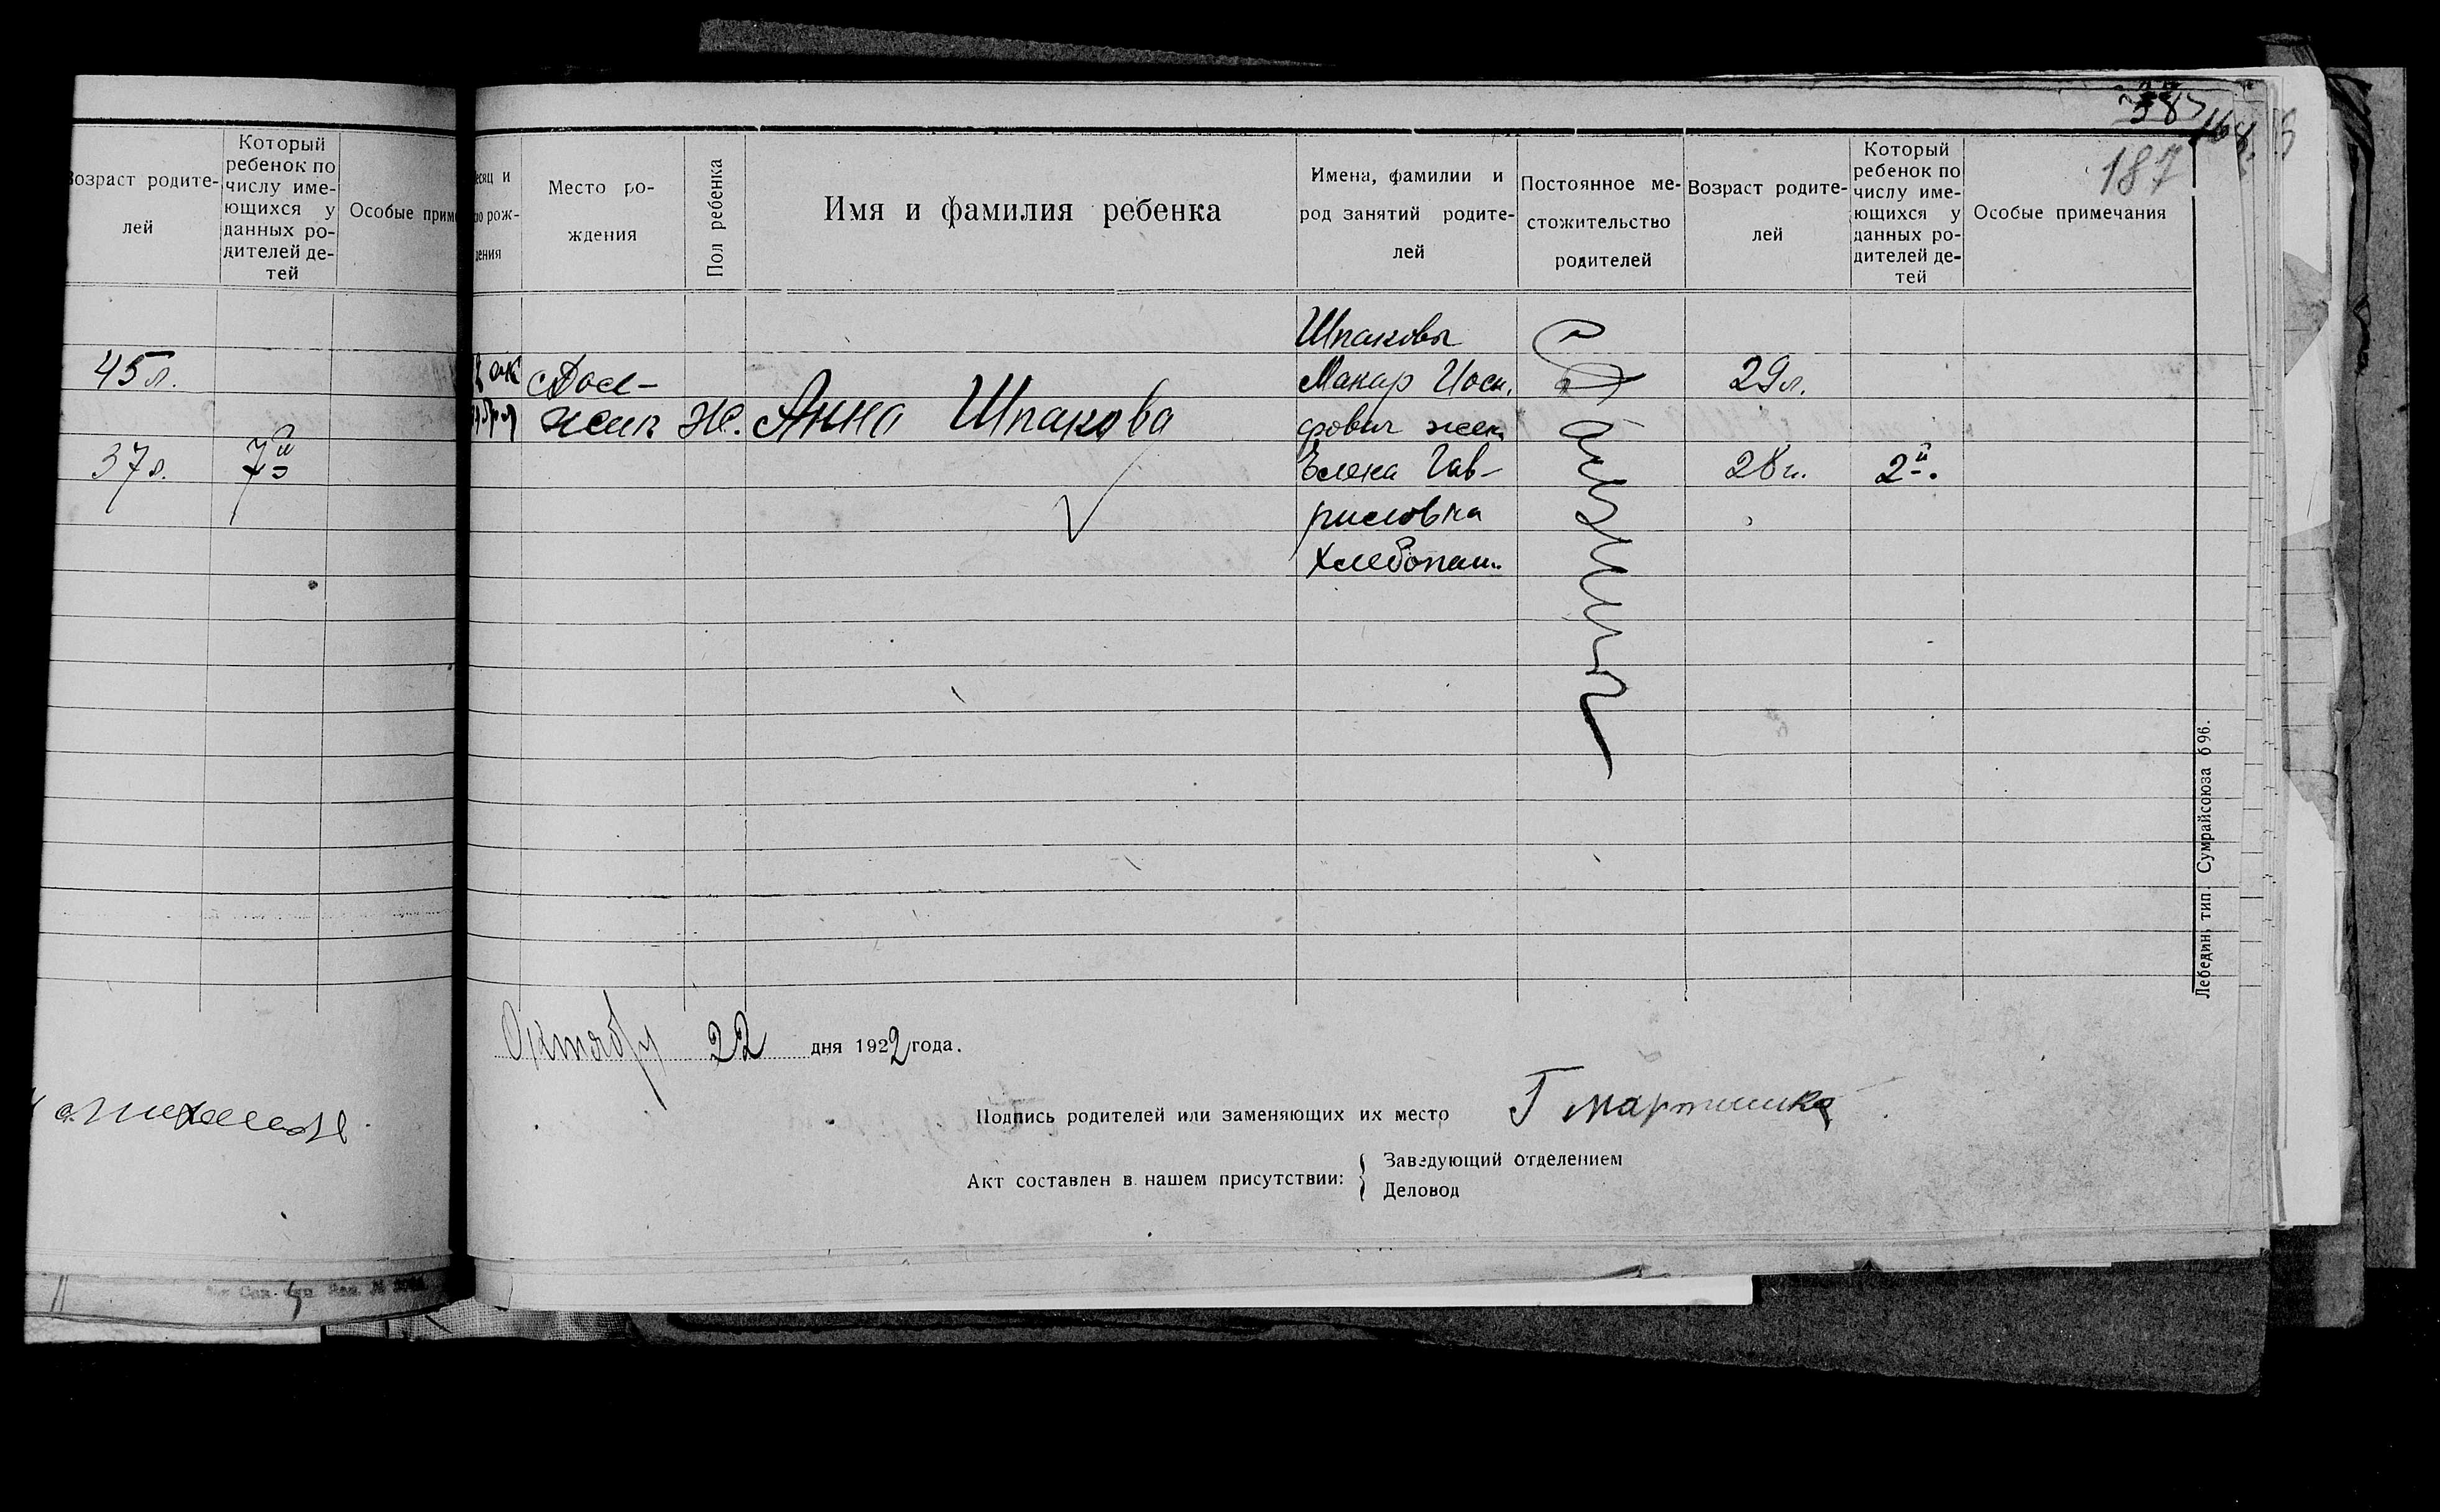 Возраст родите-
лей
Который
ребенок по
числу име-
ющихся у
данных ро-
дителей де-
тей
Особые прим
45 л.
37 л.
7й
387
187
есяц и
ло рож-
дения
Место ро-
ждения
Пол ребенка
Имя и фамилия ребенка
Имена, фамилии и
род занятий родите-
лей
Постоянное ме-
стожительство
родителей
Возраст родите-
лей
Который
ребенок по
числу име-
ющихся у
данных ро-
дителей де-
тей
Особые примечания
ок
тября
Дол-
жик
Ж.
Анна Шпакова
Шпаковы
Макар Иоси-
фович жен.
Елена Гав-
риловна
Хлебопаш.
29 л.
28 л.
2й.
Октября 22 дня 1922 года.
Подпись родителей или заменяющих их место Г Мартынка
Акт составлен в нашем присутствии:
Заведующий отделением
Деловод
Лебедин, тип. Сумрайсоюза 696.